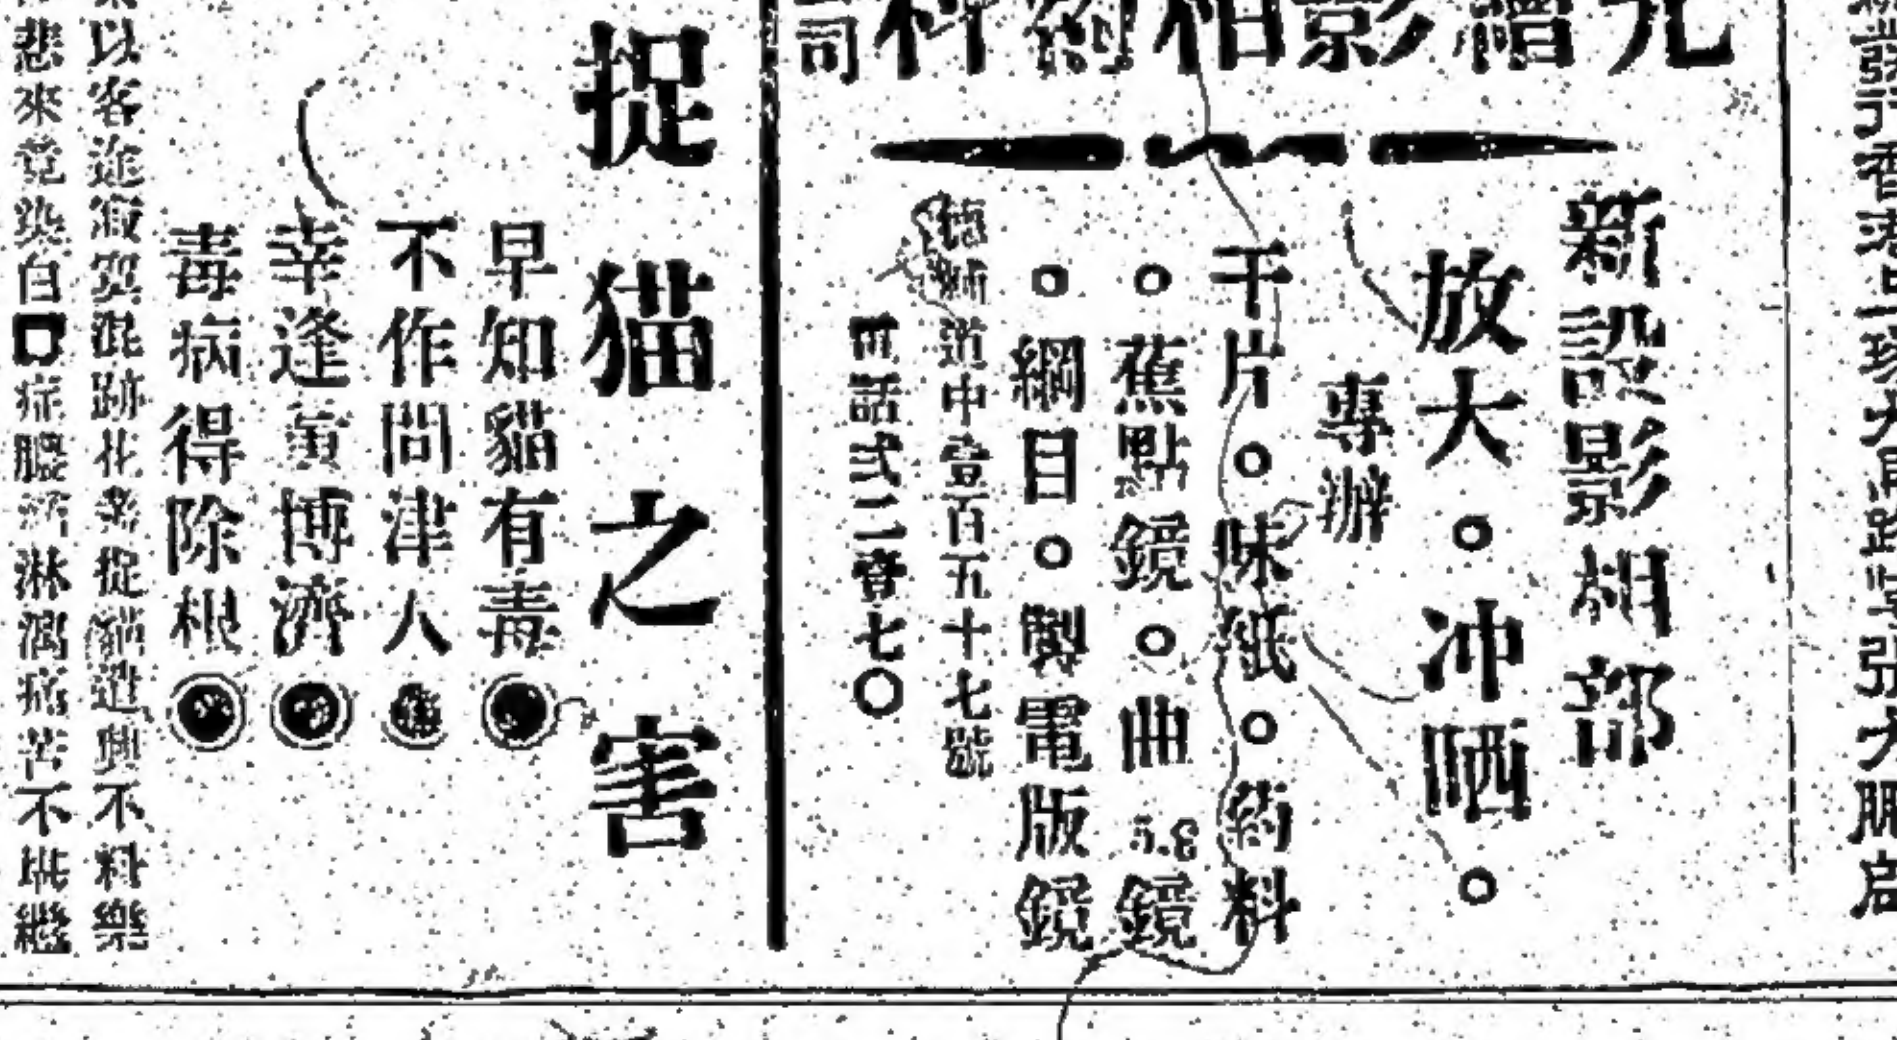 香港
張大鵬啟
影相藥料
司
新設影相部
放大。冲晒。
專辦
干片。味紙。药料
。蕉點鏡。曲鏡
。網目。製電版鏡
德輔道中壹百五十七號
電話弍二壹七〇
捉猫之害
早知貓有毒
不作問津人
幸逢寅博濟
毒病得除根
以客途寂寞混跡花叢捉貓遣興不料樂
悲來竟染白□症膿淋濁痛苦不堪繼